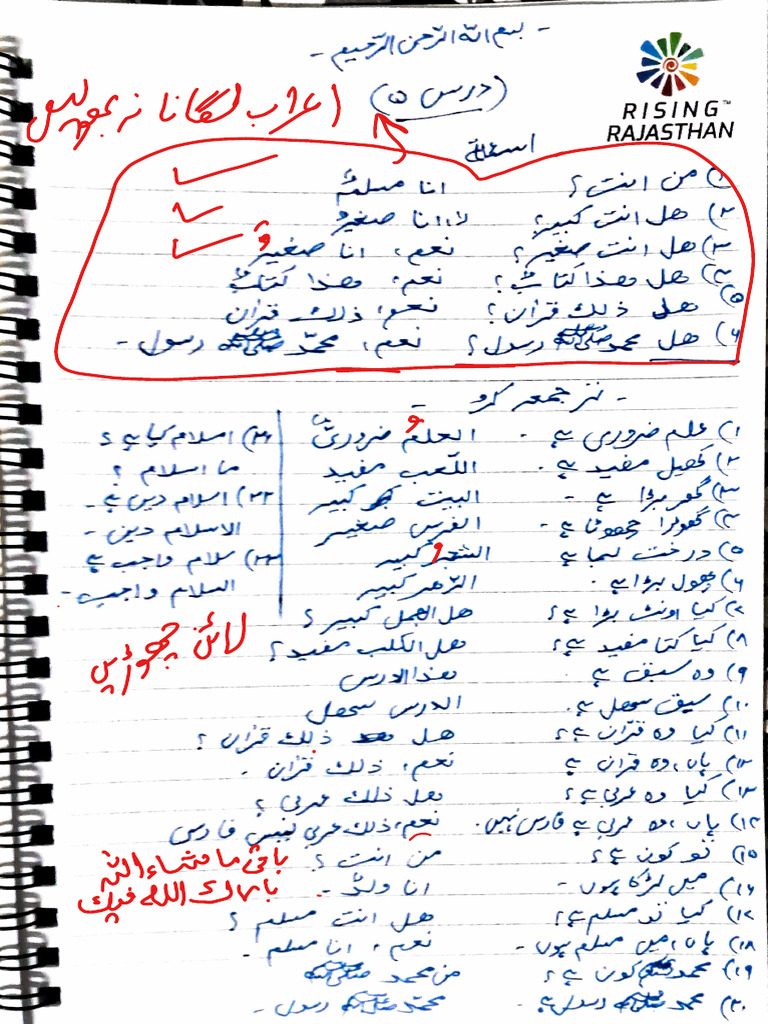 بسم اللہ الرّحمن الرّحیم -
(درس ۵)
اعراب لگانا نہ بھولیں
RISING™
RAJASTHAN
اسئلة
۱) من انت؟ انا مسلمٌ
۲) هل انت كبير؟ لا، انا صغيرٌ
۳) هل انت صغير؟ نعم، انا صغيرٌ
۴) هل هذا كتابٌ؟ نعم، هذا كتابٌ
۵) هل ذلك قرآن؟ نعم، ذلك قرآن
۶) هل محمد ﷺ رسول؟ نعم، محمّد ﷺ رسول -
- ترجمہ کرو -
۱) علم ضروری ہے - العلمُ ضروریٌّ
۲) کھیل مفید ہے - اللّعب مفيد
۳) گھر بڑا ہے - البيت كبير
۴) گھوڑا چھوٹا ہے - الفرس صغير
۵) درخت لمبا ہے الشجرُ كبير
۶) پھول بڑا ہے - الزّهر كبير
۷) کیا اونٹ بڑا ہے؟ هل الجمل كبير؟
۸) کیا کتا مفید ہے؟ هل الكلب مفيد؟
۹) وہ سبق ہے - هذا الدرس
۱۰) سبق سهل ہے - الدرس سهل
۱۱) کیا وہ قرآن ہے؟ هل ذلك قرآن؟
۱۲) ہاں، وہ قرآن ہے نعم، ذلك قرآن -
۱۳) کیا وہ عربی ہے؟ هل ذلك عربی؟
۱۴) ہاں، وہ عربی ہے فارسی نہیں - نعم، ذلك عربی ليس فارسی
۱۵) تو کون ہے؟ من انت؟
۱۶) میں لڑکا ہوں - انا ولدٌ -
۱۷) کیا تو مسلم ہے؟ هل انت مسلم؟
۱۸) ہاں، میں مسلم ہوں - نعم، انا مسلم -
۱۹) محمد ﷺ کون ہے؟ من محمد ﷺ
۲۰) محمد ﷺ رسول ہے - محمّد ﷺ رسول -
۲۱) اسلام کیا ہے؟
ما اسلام؟
۲۲) اسلام دین ہے -
الاسلام دين -
۲۳) سلام واجب ہے
السلام واجب -
لائن چھوڑیں
باقی ما شاء اللہ
بارك الله فيك